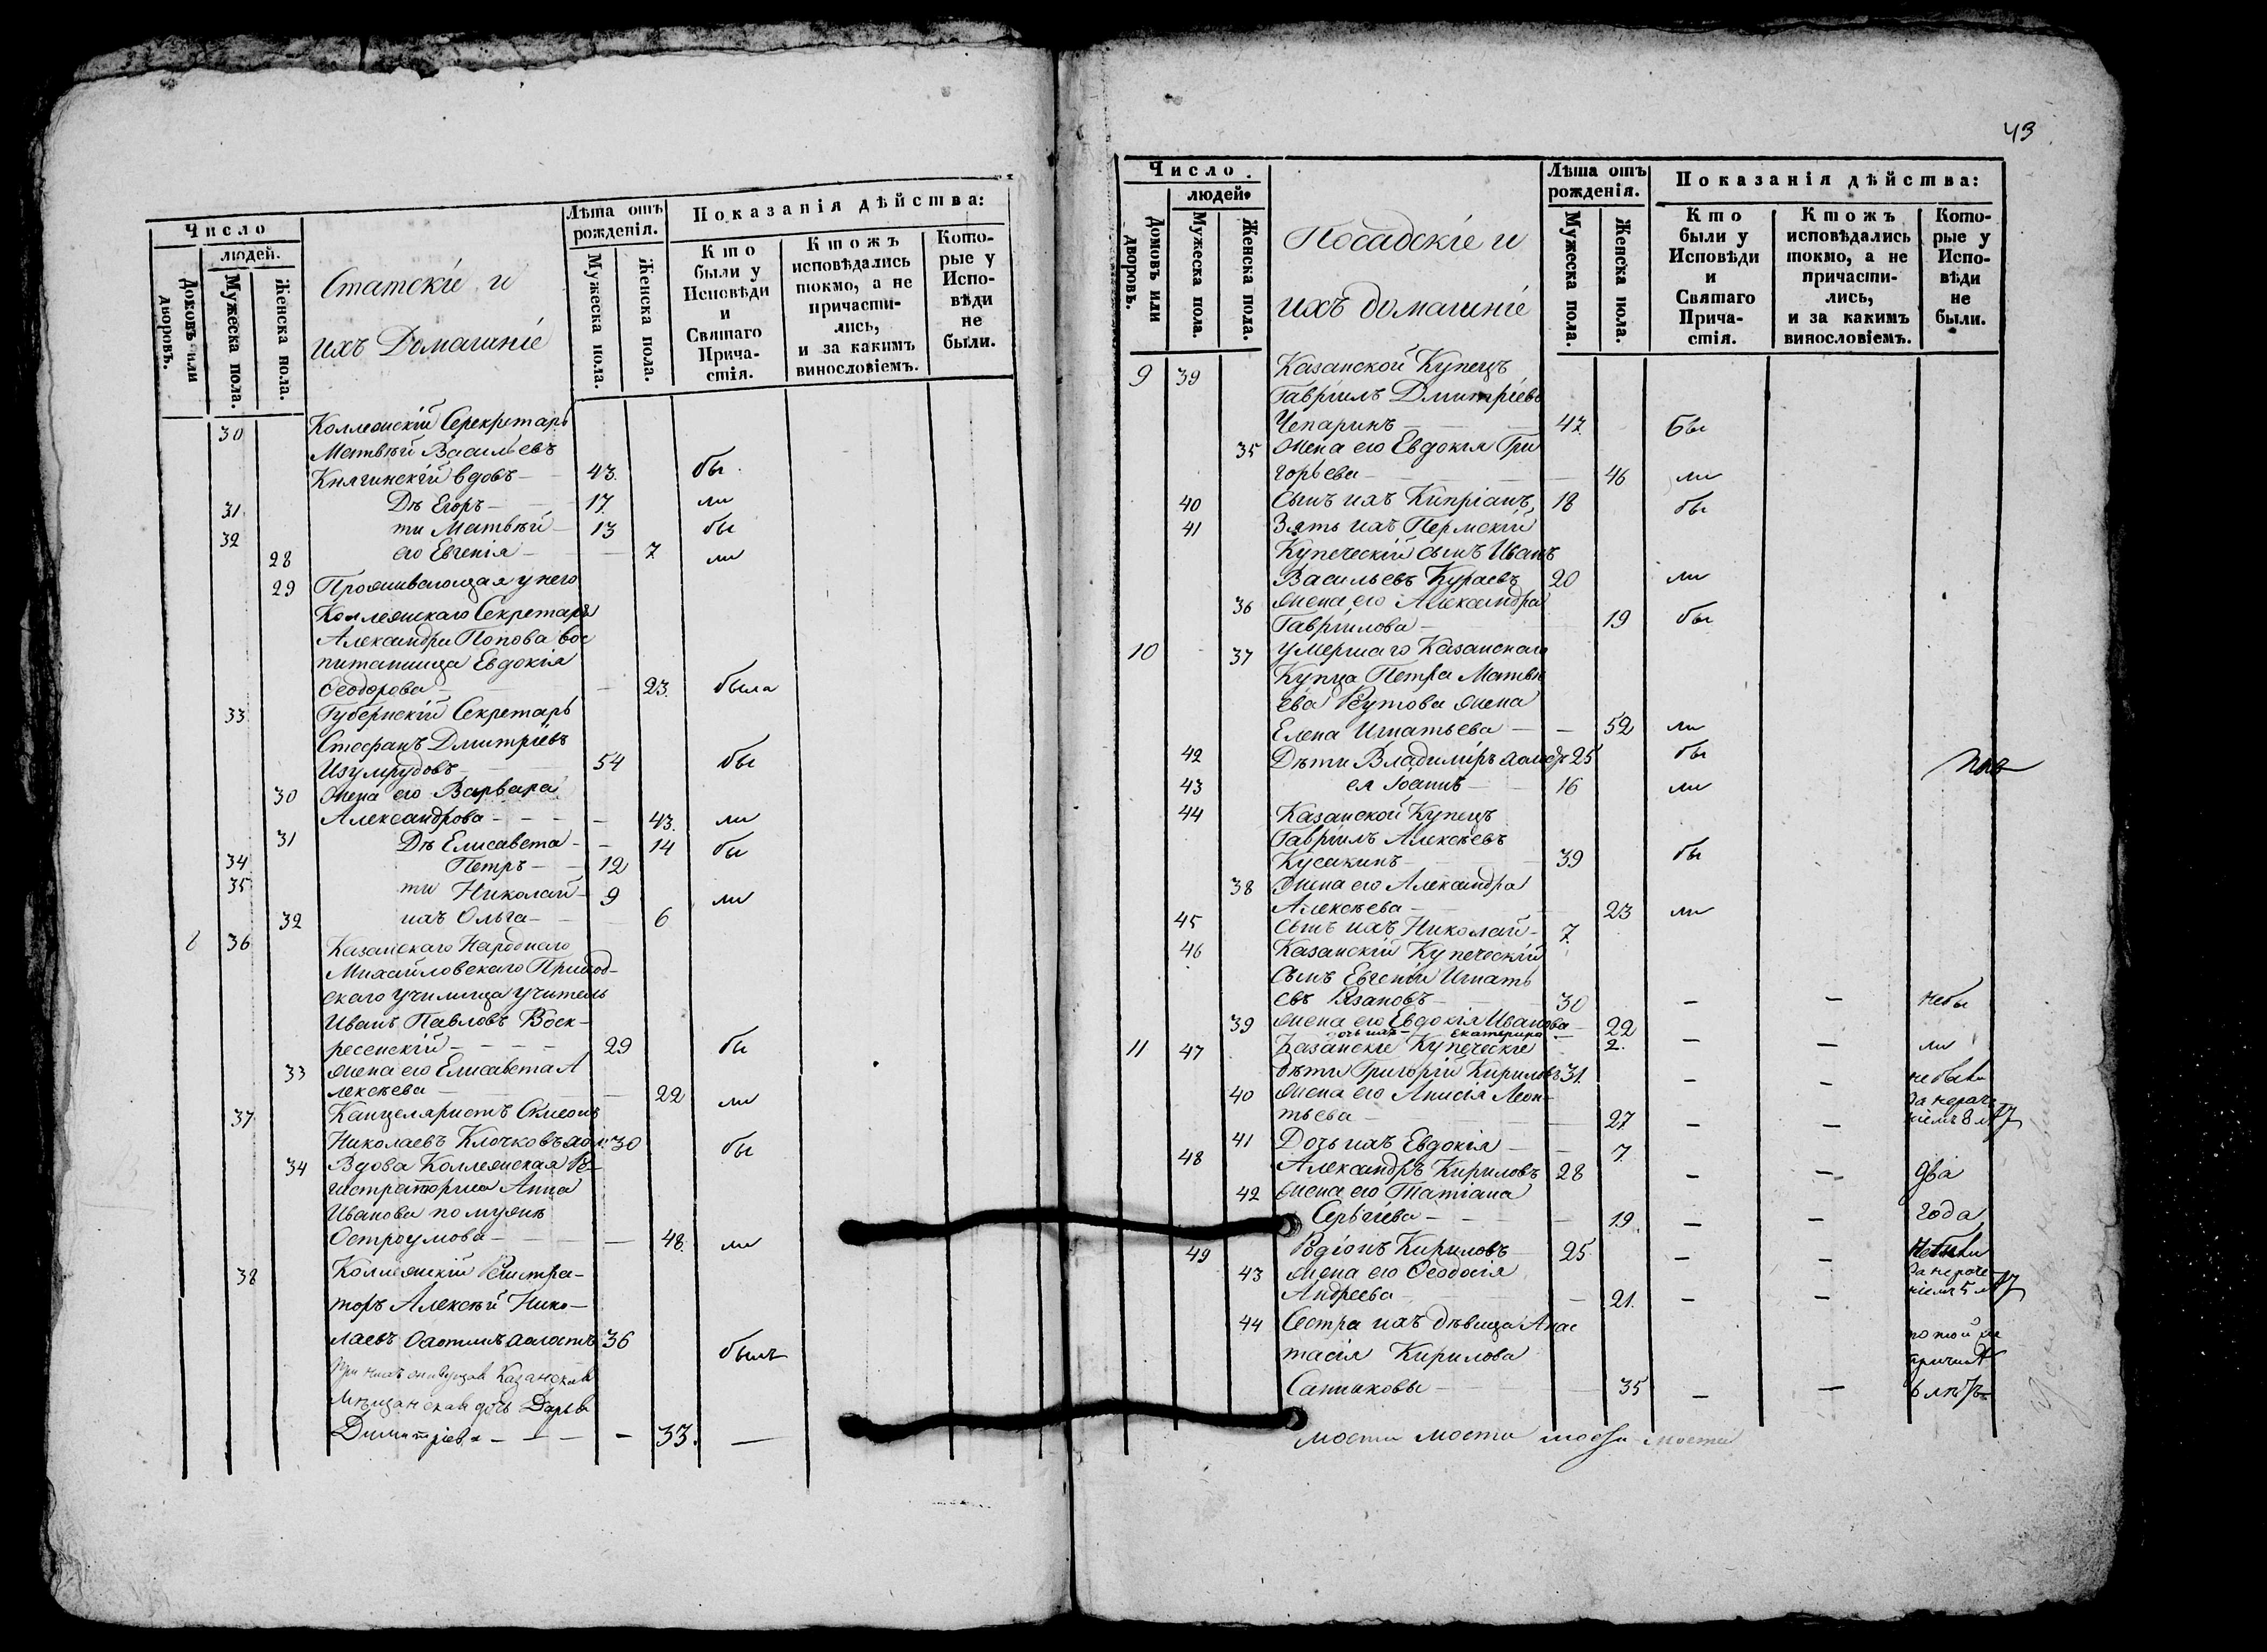 Число
людей.
Домовъ или дворовъ.
Мужеска пола.
Женска пола.
Статскіе и
ихъ Домашніе
Лѣта отъ рожденія.
Мужеска пола.
Женска пола.
Показанія дѣйства:
Кто были у Исповѣди и Святаго Прича-стія.
Ктожъ исповѣдались токмо, а не причасти-лись, и за какимъ винословіемъ.
Кото-рые у Испо-вѣди не были.
30 Коллежскій Серекретарь
Матвѣй Васильевъ
Княгинскій вдовъ — 43. бы
31 Дѣ Егоръ — 17. ли
32 ти Матвѣй — 13 бы
28 его Евгенія — — 7 ли
29 Проживающая у него
Коллежскаго Секретаря
Александра Попова вос
питанница Евдокія
Ѳеодорова — — 23. была
33 Губернскій Секретарь
Стефанъ Дмитріевъ
Изумрудовъ 54 бы
30 жена его Варвара
Александрова - - - - 43. ли
31 Дѣ Елисавета - - 14 бы
34 Петръ — — 12
35 ти Николай — 9 ли
32 ихъ Ольга — — 6
8 36 Казанскаго Народнаго
Михайловскаго Приход-
скаго училища учитель
Иванъ Павловъ Воск-
ресенскій - - - - 29 бы
33 жена его Елисавета А
лексѣева — — 22 ли
37 Канцеляристъ Симеонъ
Николаевъ Клочковъ хол: 30 бы
34 Вдова Коллежская Ре-
гистраторша Анна
Иванова по мужѣ
Остроумова — — 48. ли
38 Коллежскій Регистра-
торъ Алексѣй Нико-
лаевъ холостъ 36 былъ
При нихъ живущая Казанская
Мѣщанская дочь Дарья
Димитріева - — — - 33. —
43
Число.
людей.
Домовъ или дворовъ.
Мужеска пола.
Женска пола.
Посадскіе и
ихъ домашніе
Лѣта отъ рожденія.
Мужеска пола.
Женска пола.
Показанія дѣйства:
Кто были у Исповѣди и Святаго Прича-стія.
Ктожъ исповѣдались токмо, а не причасти-лись, и за какимъ винословіемъ.
Кото-рые у Испо-вѣди не были.
9 39 Казанской Купецъ
Гавріилъ Дмитріевъ
Чепаринъ — 47. Бы
35 жена его Евдокія Гри
горьева — 46 ли
40 Сынъ ихъ Кипріанъ, 18 бы
41 Зять ихъ Пермскій
Купеческій сынъ Иванъ
Васильевъ Кураевъ 20 ли
36 жена его Александра
Гавріилова — 19 бы
10 37 Умершаго Казанскаго
Купца Петра Матвѣ
ева Реутова жена
Елена Игнатьева — — 52 ли
42 Дѣти Владиміръ 25 бы
43 ея Іоаннъ — 16 ли
44 Казанской Купецъ
Гавріилъ Алексѣевъ
Кусакинъ — 39 бы
38 жена его Александра
Алексѣева — 23 ли
45 Сынъ ихъ Николай — 7.
46 Казанскій Купеческій
Сынъ Евгеній Игнать
евъ Рязановъ — 30 — — небы
39 жена его Евдокія Иванова — 22
дочь ихъ — Екатерина — 2. — — ли
11 47 Казанскіе Купеческіе
дѣти Григорій Кириловъ 31. — — не были
40 жена его Анисія Леон-
тьева — 27. — — за нераче-
ніемъ 8 лѣтъ
41 Дочь ихъ Евдокія — — 7.
48 Александръ Кириловъ 28 — — два
42 жена его Татіана
Сергіева — 19. — — года
49 Родіонъ Кириловъ 25 — — Небыли
43 жена его Ѳеодосія за нераче-
Андреева — 21. — — ніемъ 5 лѣтъ
44 Сестра ихъ дѣвица Анас
тасія Кирилова по той же
причинѣ
Сапшаковы — 35 — — 6 лѣтъ
мости мости мости